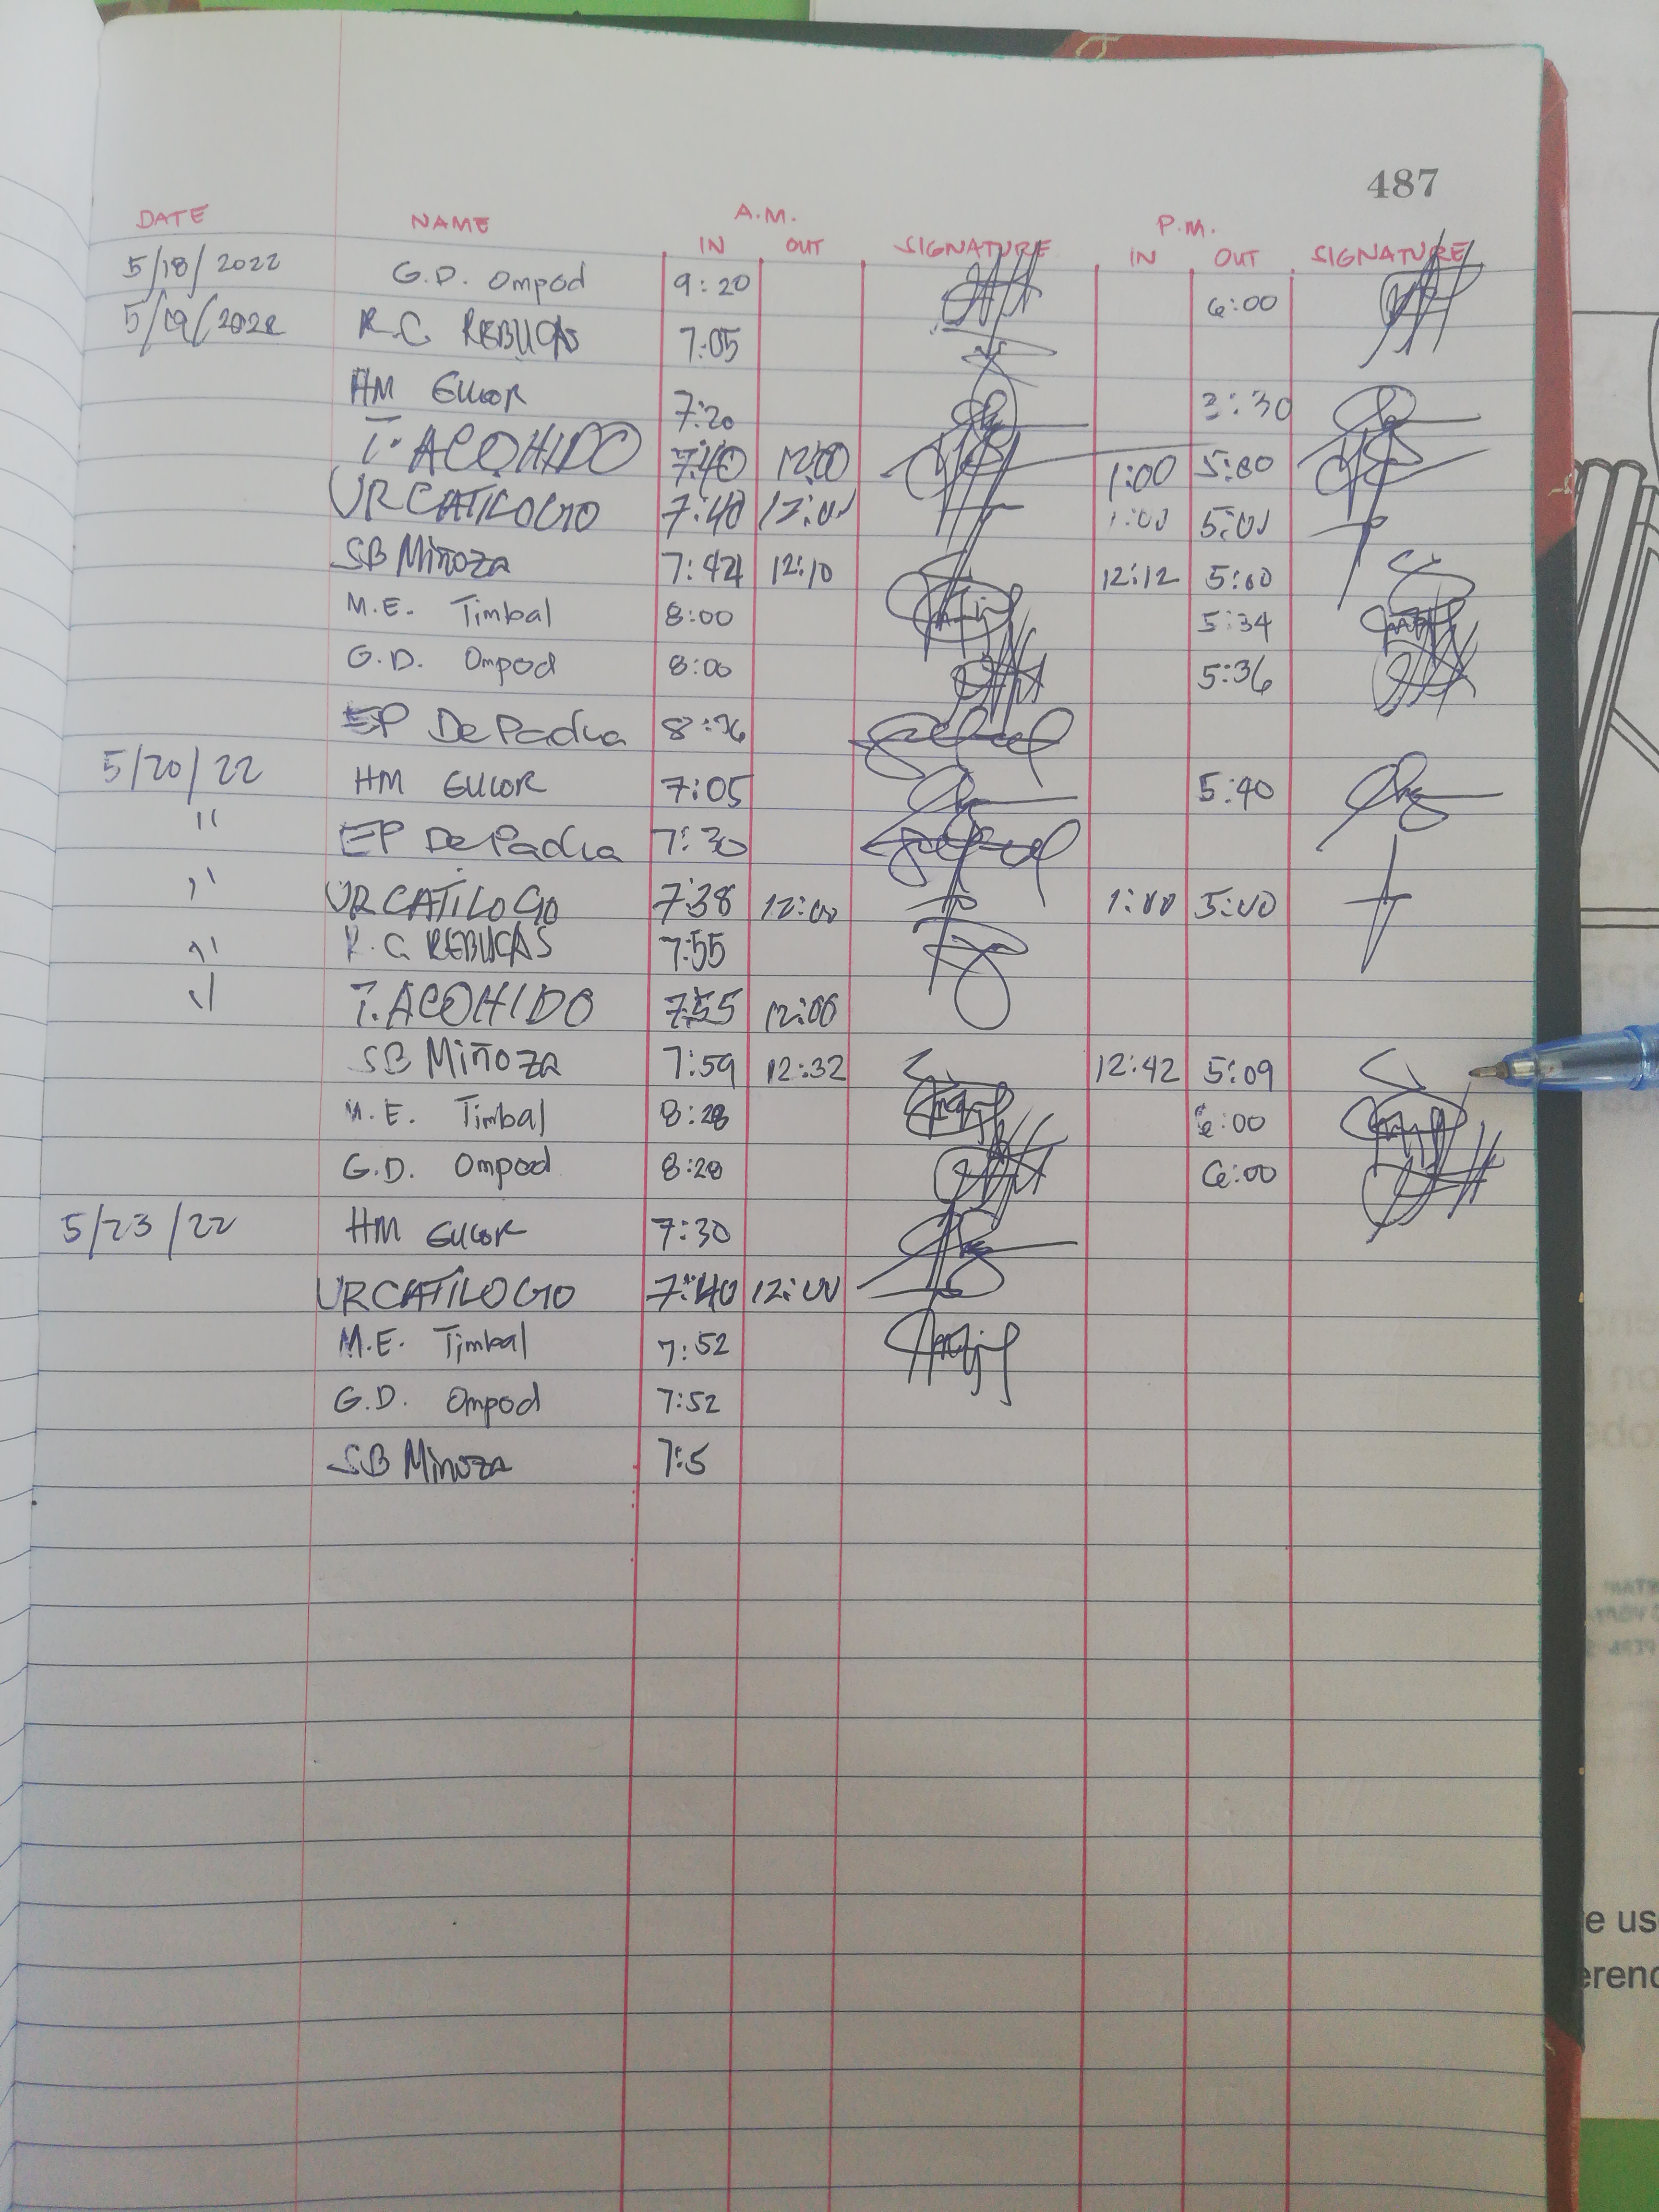 487
DATE NAME A.M. P.M.
IN OUT SIGNATURE IN OUT SIGNATURE
5/18/2022 G.D. Ompod 9:20 6:00
5/19/2022 R.C. REBUCAS 7:05
HM 7:20 3:30
T. ACOHIDO 7:40 12:00 1:00 5:00
VR CATILOGO 7:40 12:00 1:00 5:00
SB Miñoza 7:42 12:10 12:12 5:00
M.E. Timbal 8:00 5:34
G.D. Ompod 8:00 5:36
EP De Padua 8:36
5/20/22 HM 7:05 5:40
" EP De Padua 7:30
" VR CATILOGO 7:38 12:00 1:00 5:00
" R.C. REBUCAS 7:55
T. ACOHIDO 7:55 12:00
SB Miñoza 7:59 12:32 12:42 5:09
M.E. Timbal 8:28 6:00
G.D. Ompod 8:28 6:00
5/23/22 HM 7:30
VR CATILOGO 7:40 12:00
M.E. Timbal 7:52
G.D. Ompod 7:52
SB Minoza 7:5